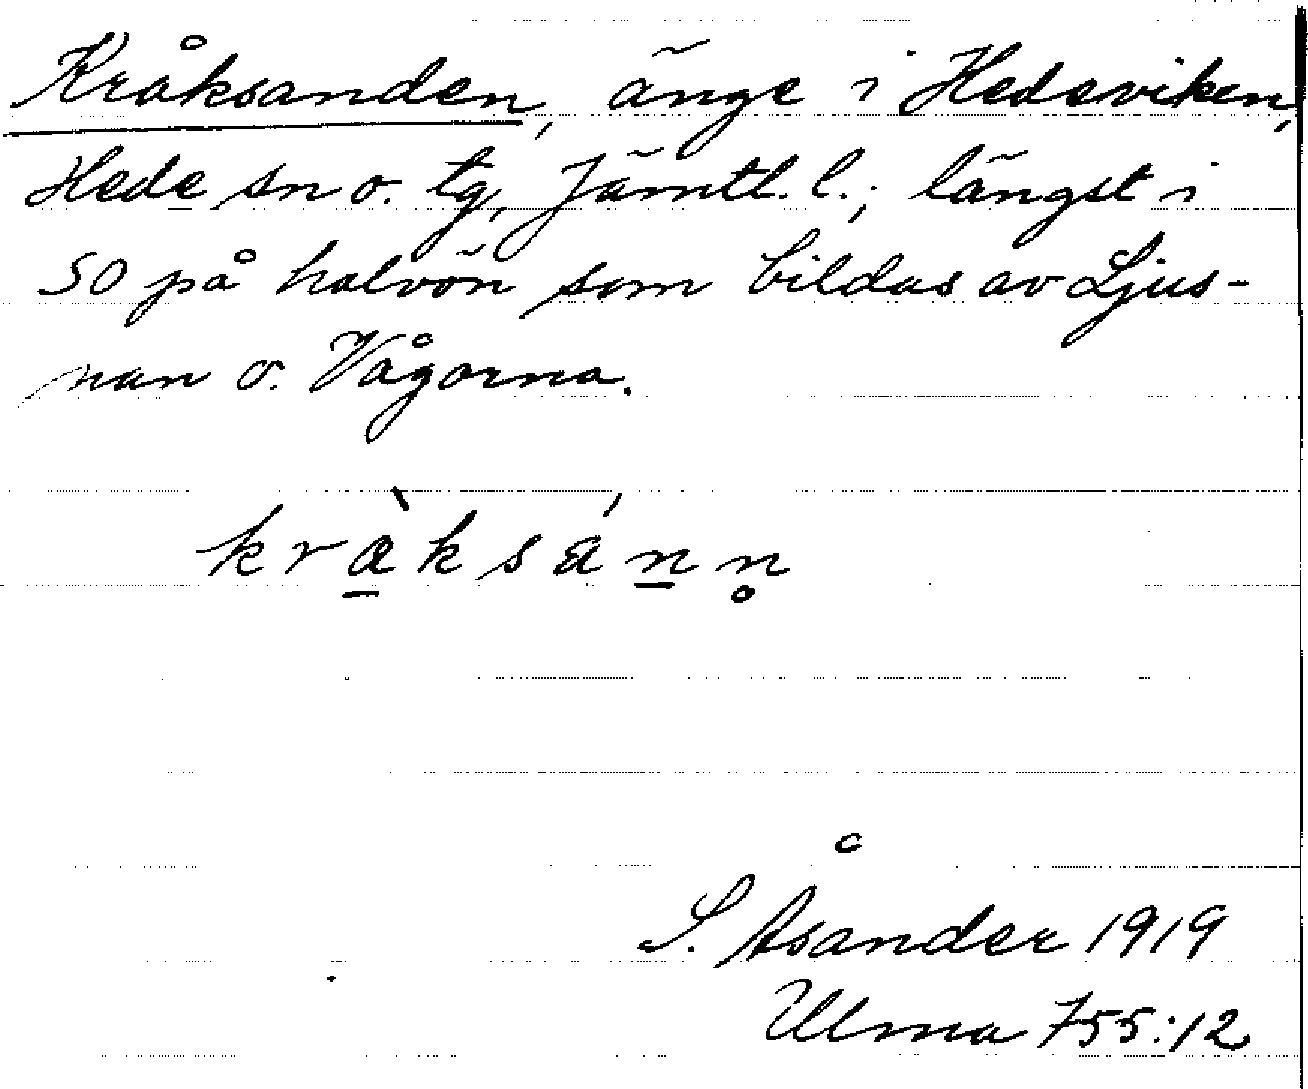 Kråksanden, änge i Hedeviken,
Hede sn o. tg, Jämtl. l.; längst i
SO på halvön som bildas av Ljus-
nan o. Vågorna.
kræ̱̀ksánṉn̥
S. Åsander 1919
Ulma 755:12